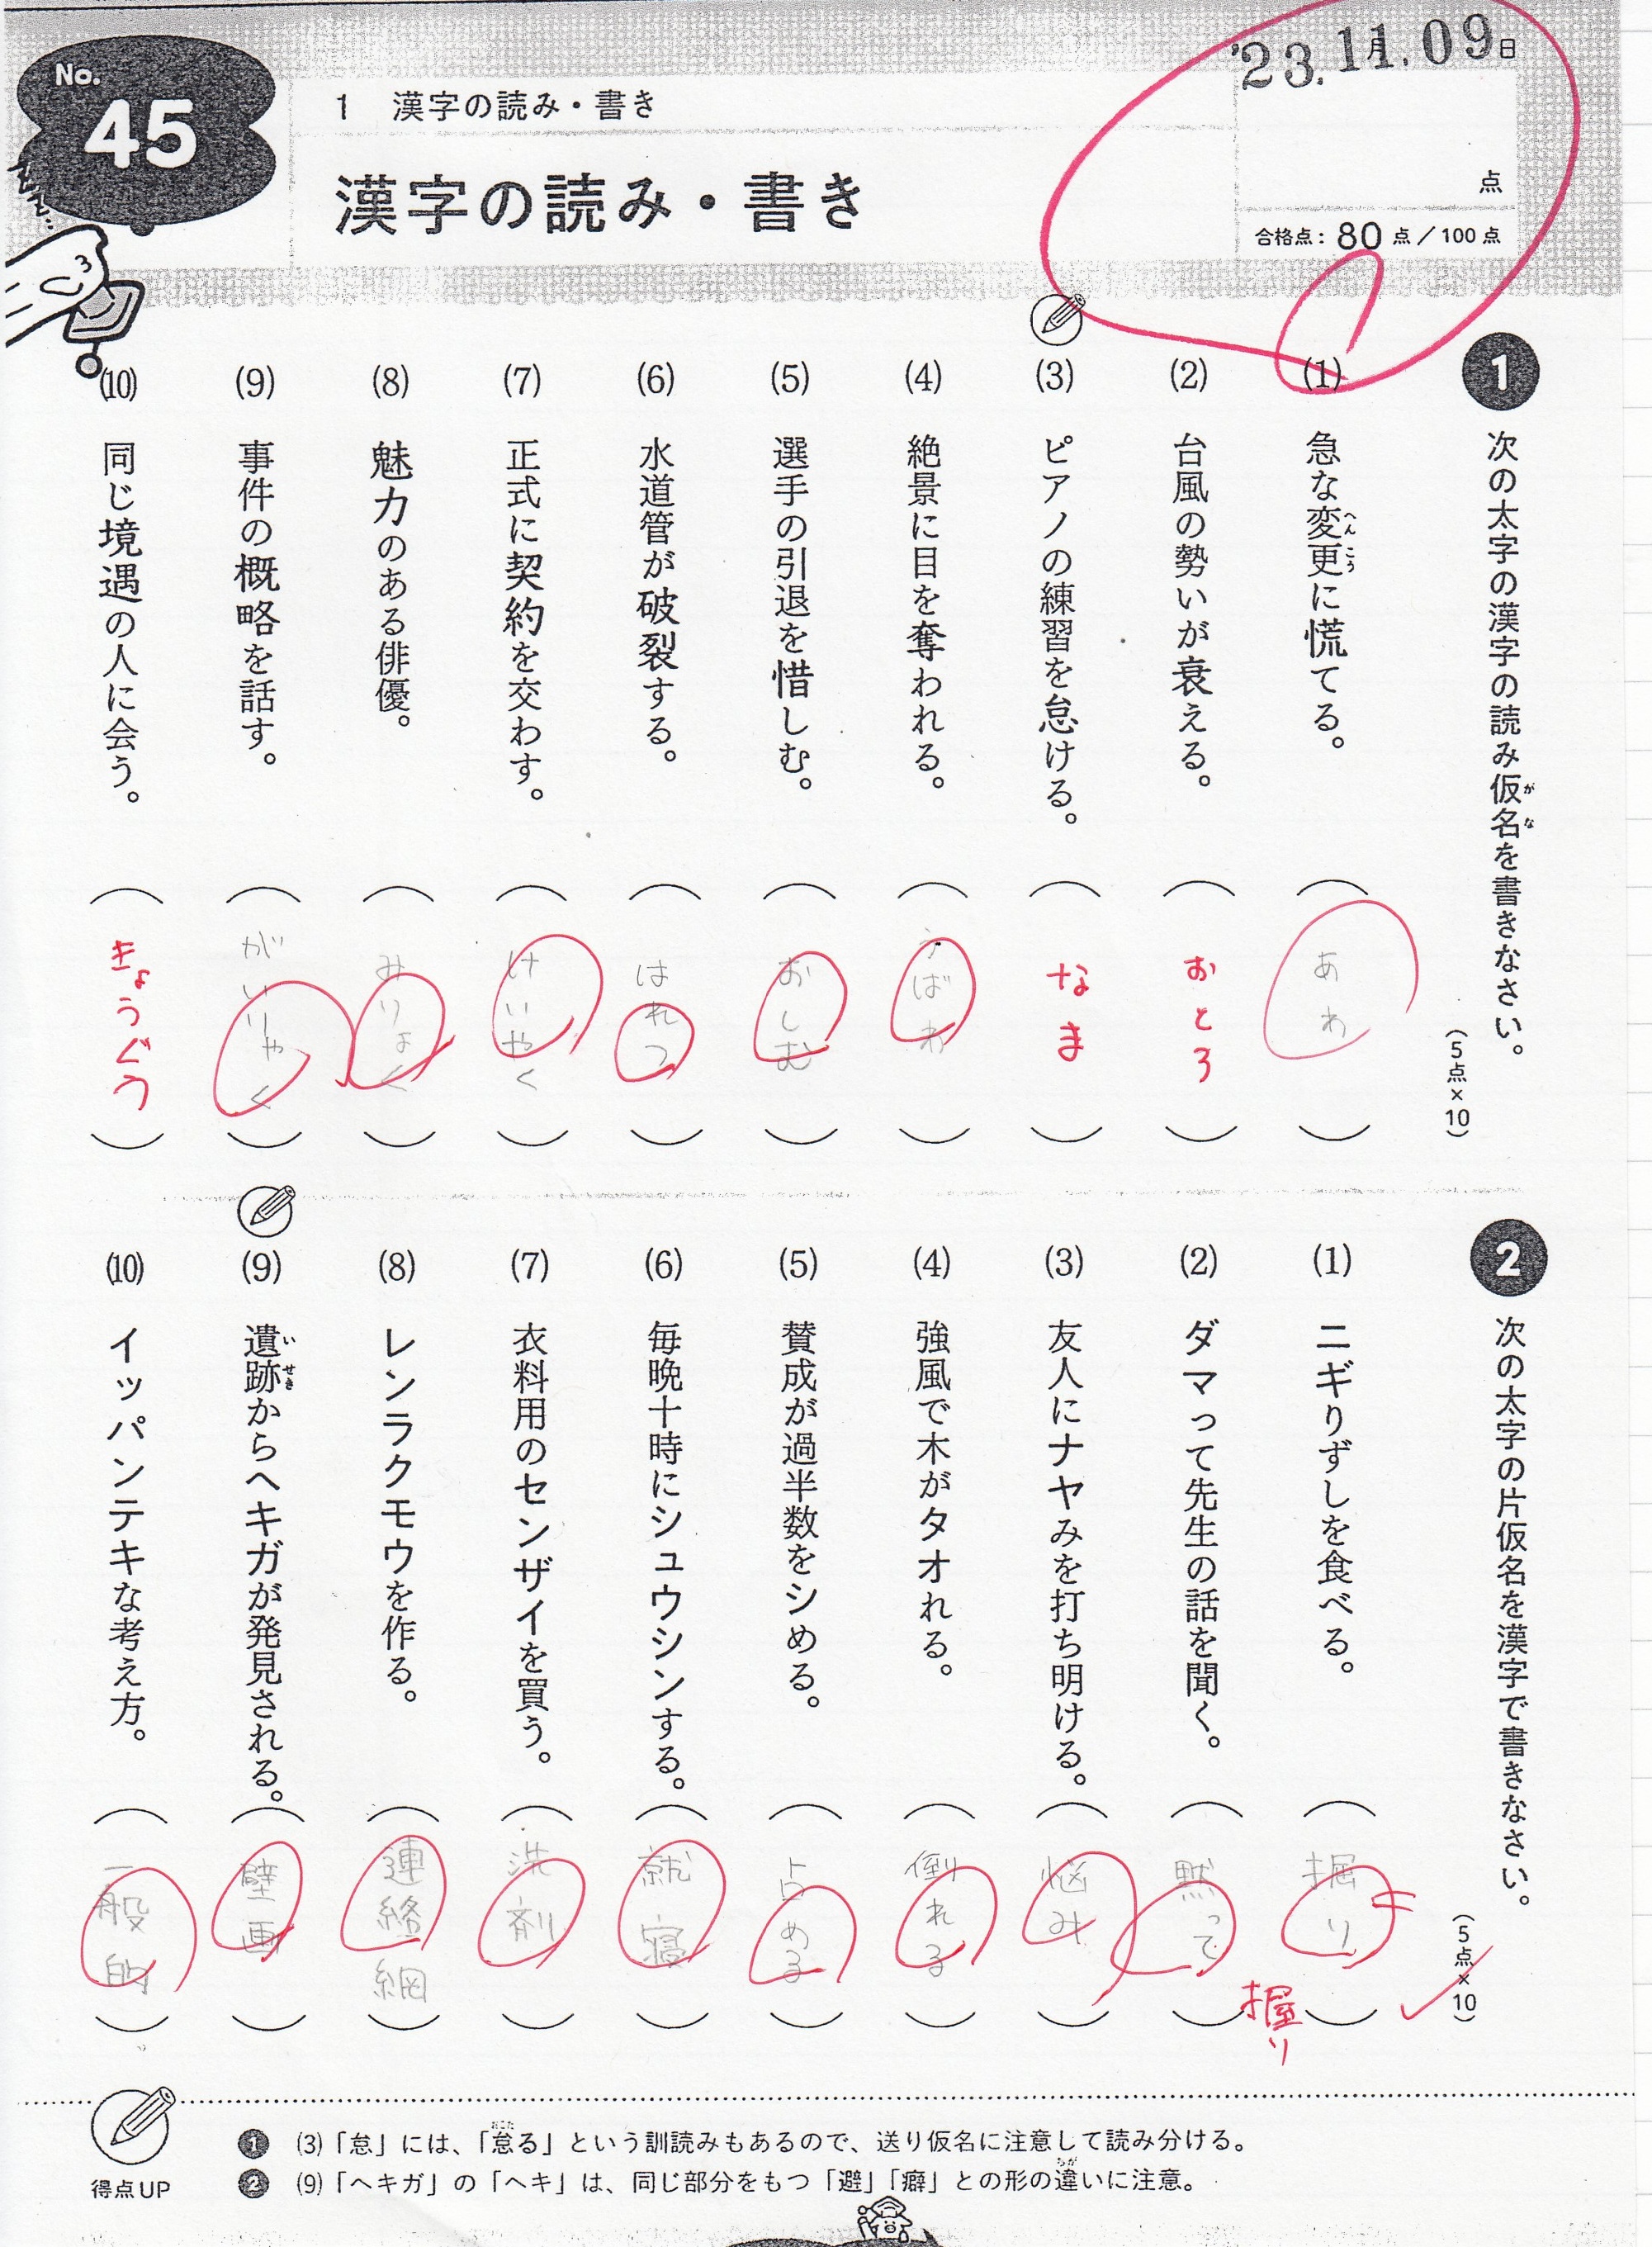 No.
45
1 漢字の読み・書き
漢字の読み・書き
'23.11.09
月
日
点
合格点：80点／100点
1 次の太字の漢字の読み仮名を書きなさい。
がな
(5点×10)
(1) 急な変更に慌てる。
へんこう
(あわ)
(2) 台風の勢いが衰える。
(おとろ)
(3) ピアノの練習を怠ける。
(なま)
(4) 絶景に目を奪われる。
(うばわ)
(5) 選手の引退を惜しむ。
(おしむ)
(6) 水道管が破裂する。
(はれつ)
(7) 正式に契約を交わす。
(けいやく)
(8) 魅力のある俳優。
(みりょく)
(9) 事件の概略を話す。
(がいりゃく)
(10) 同じ境遇の人に会う。
(きょうぐう)
2 次の太字の片仮名を漢字で書きなさい。
(5点×10)
(1) ニギりずしを食べる。
(掘り)
握り
(2) ダマって先生の話を聞く。
(黙って)
(3) 友人にナヤみを打ち明ける。
(悩み)
(4) 強風で木がタオれる。
(倒れる)
(5) 賛成が過半数をシめる。
(占める)
(6) 毎晩十時にシュウシンする。
(就寝)
(7) 衣料用のセンザイを買う。
(洗剤)
(8) レンラクモウを作る。
(連絡網)
(9) 遺跡からヘキガが発見される。
いせき
(壁画)
(10) イッパンテキな考え方。
(一般的)
得点UP
1 (3)「怠」には、「怠る」という訓読みもあるので、送り仮名に注意して読み分ける。
おこた
2 (9)「ヘキガ」の「ヘキ」は、同じ部分をもつ「避」「癖」との形の違いに注意。
ちが